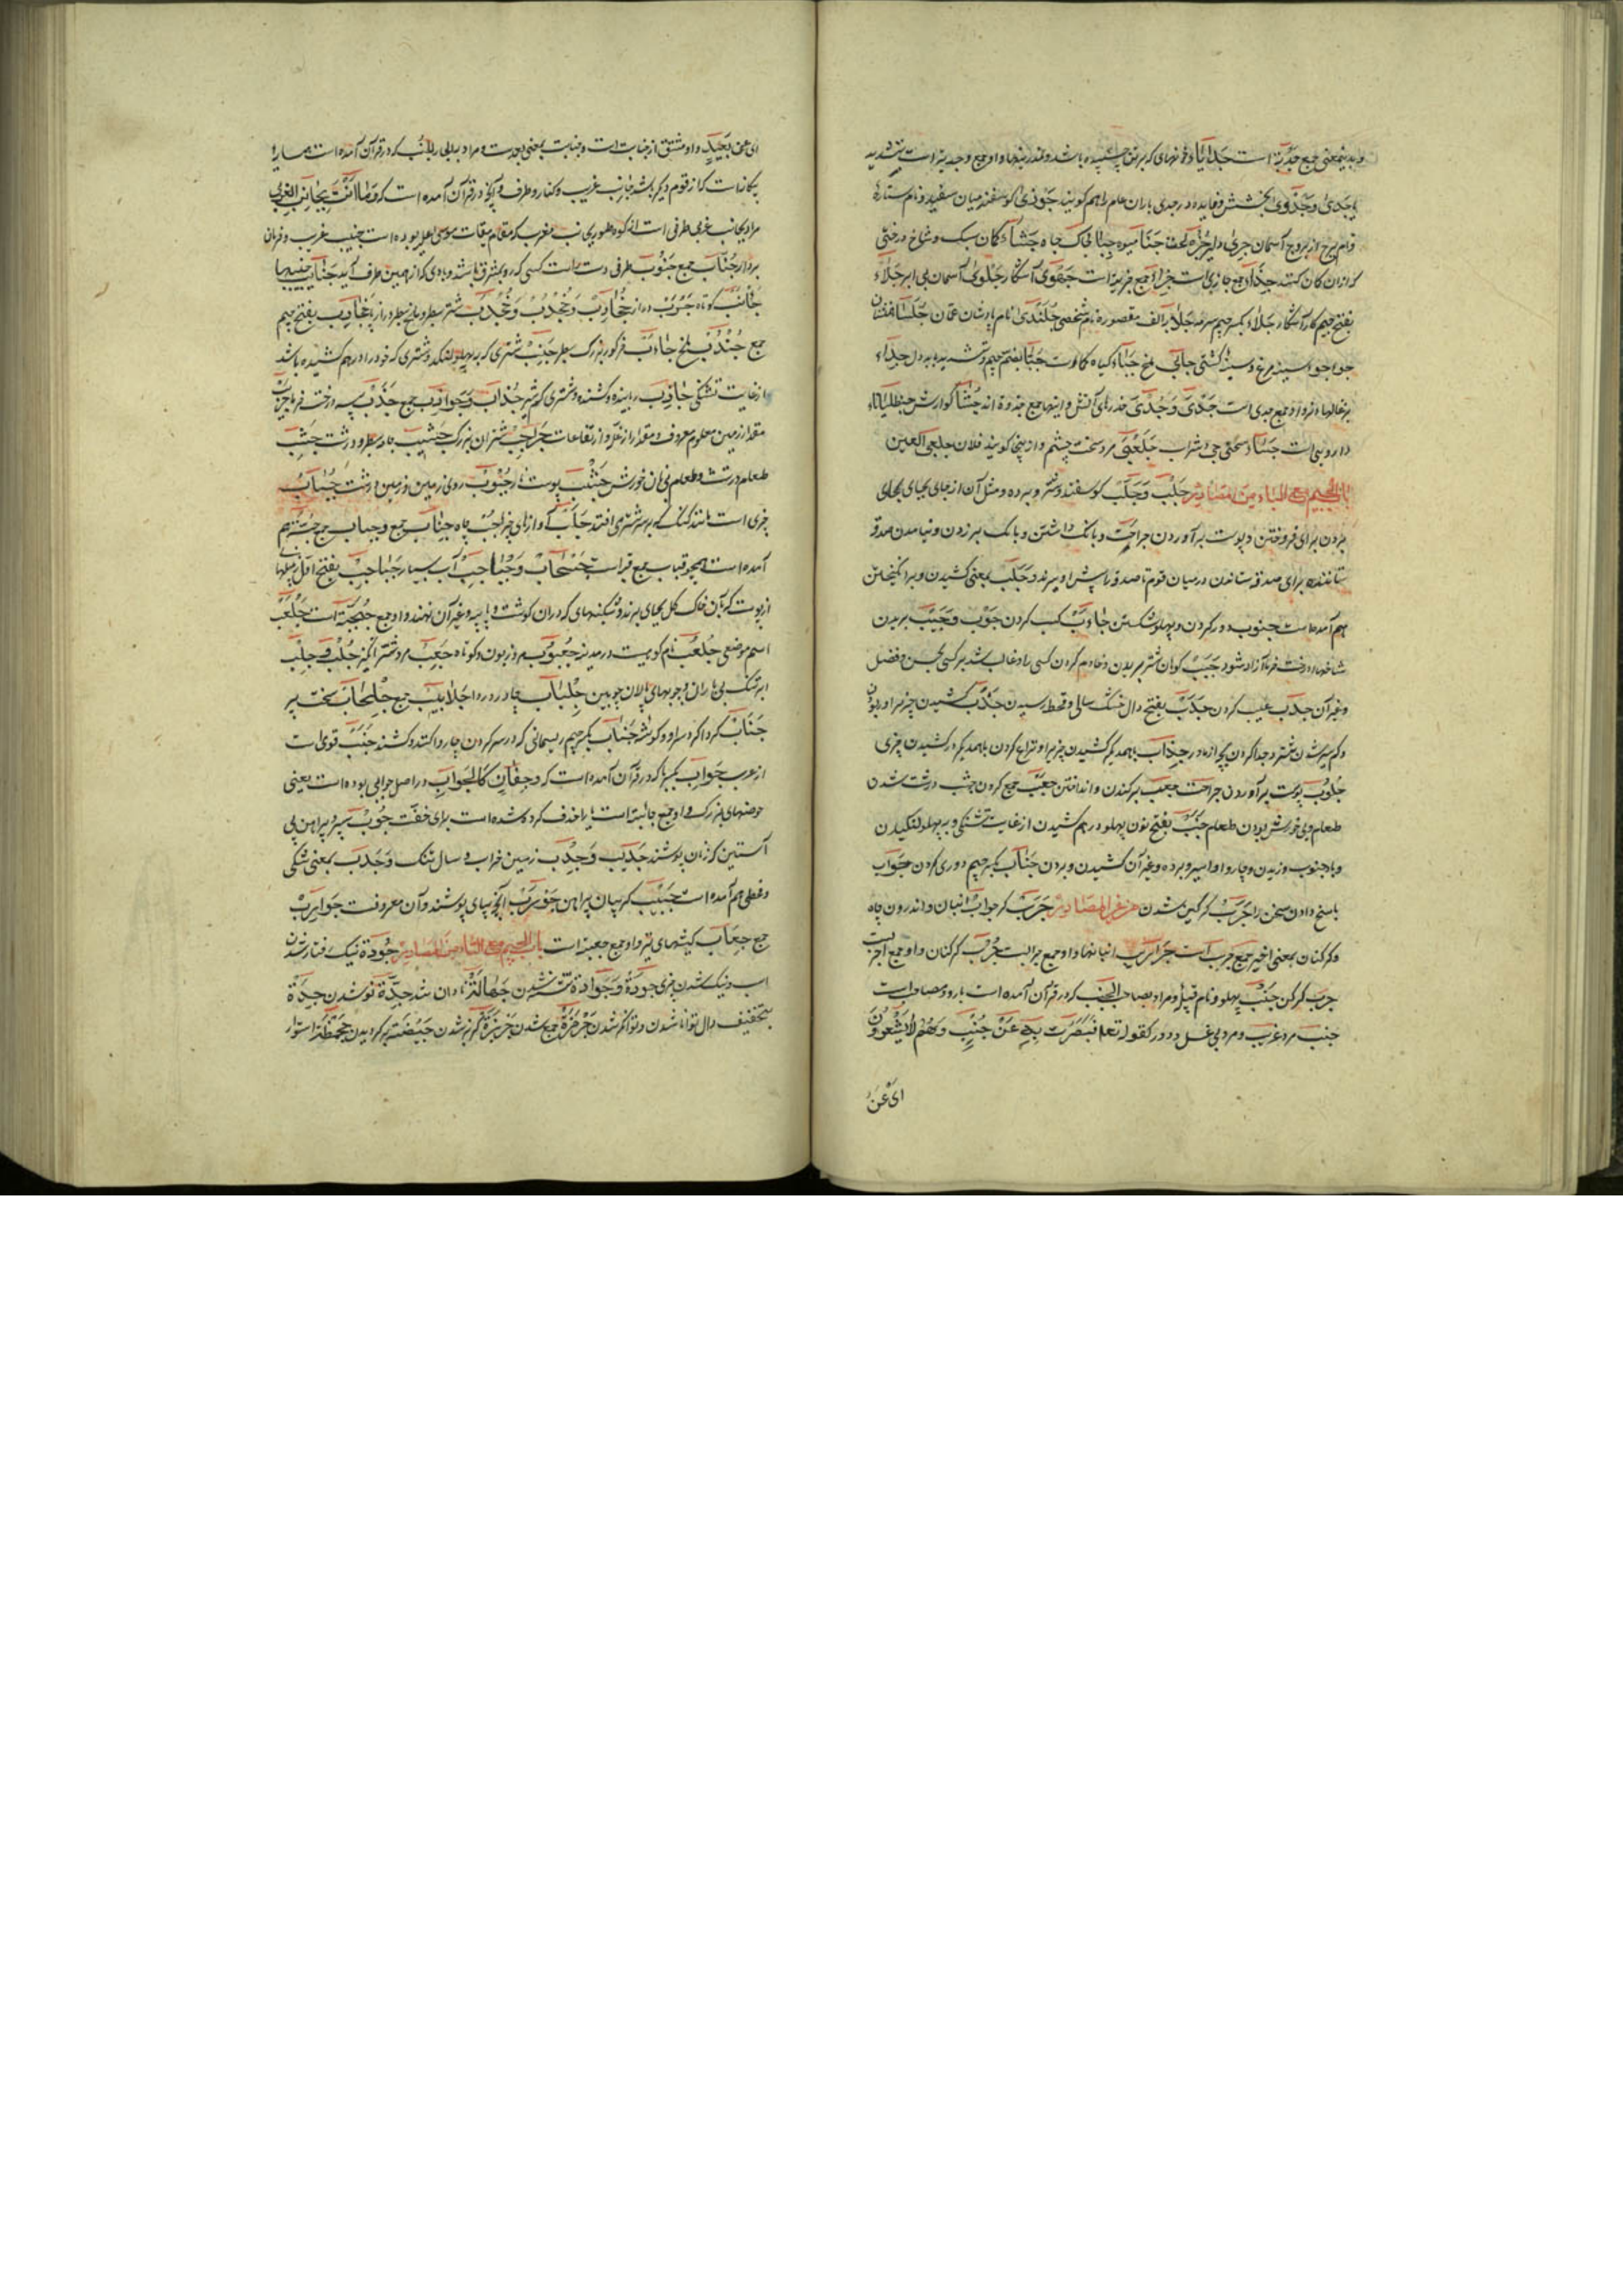 و بدینمعنی جمع جدیة است جدایا خونهای که بر تن چسپیده باشد و نمدزینها و او جمع جدیة است بتشدید
یا جدی و جدوی بخشش و فایده و در جدی باران عام را هم گویند جوذی گوسفند میان سفید و نام ستارۀ
و نام برج از بروج آسمان جری دلیر جزء لخت جنا میوه جبا خاک چاه جشاء کمان سبک و شاخ درختی
که از آن کمان کنند جداء جمع جازی است جزاء جمع جزیه است جهوی آشکار جلوی آسمان بی ابر جلاء
بفتح جیم کار آشکار جلاء بکسر جیم سرمه جلا با الف مقصوره نام شخصی جلندی نام پادشاه عمان
جواجوا سینه مرغ و سینه کشتی جابی ملخ جباء گیاه جبا بضم جیم و تشدید با بددل جداء
بزغالها و او جمع جدی است جذی و جذی خدرهای آتش و اینها جمع جذوة اند جشا گوارش جنطیانا
داروییست جسا و سختی جی شراب جلعبی مرد سخت چشم و از اینجا گویند فلان جلعبی العین
باب الجیم مع الباء من المصادر جلب و جلب گوسفند و شتر و برده و مثل آن از جای بجای
بردن برای فروختن و پوست برآوردن جراحت و بانگ داشتن و بانگ بر زدن و نیامدن صدقه
ستاننده برای صدقه ستاندن در میان قوم تا صدقه را پیش او برند و جلب بمعنی کشیدن و برانگیختن
هم آمده است جنوب دور کردن و پهلو شکستن جاءب کسب کردن جوب و جیب بریدن
شاخها درخت خرما آزاد شود جبب کوهان شتر بریدن و خادم کردن کسی را و غالب شدن بر کسی بحسن و فضل
و غیر آن جدب عیب کردن جدب بفتح دال خشک سالی و قحط رسیدن جذب کشیدن چیزی را و ربودن
و کم شیر شدن شتر و جدا کردن بچه از مادر جذاب باهمدیگر کشیدن چیزی را و نزاع کردن باهمدیگر در کشیدن چیزی
جلوب پوست برآوردن جراحت جعب برکندن و انداختن جعب جمع کردن جشب درشت شدن
طعام و بی خورش بودن طعام جنب بفتح نون پهلو درهم کشیدن از غایت تشنگی و به پهلو لنگیدن
و باد جنوب وزیدن و چاروا و اسیر و برده و غیر آن کشیدن و بردن جناب بکسر جیم دوری کردن جواب
پاسخ دادن سخن را جرب گرگین شدن من غیر المصادر جرب گر جراب انبان و اندرون چاه
و گرگنان بمعنی اخیر جمع جرب است جرب انبانها و او جمع جراب است جرب گرگنان و او جمع اجرب است
جرب گرگن جنب پهلو و نام قبیله و مراد بصاحب الجنب که در قرآن آمده است یار و مصاحب است
جنب مرد غریب و مرد بی غسل و دور کقوله تعالی فبصرت به عن جنب و هم لا یشعرون
ای عن
ای عن بعید و او مشتق از جنابت است و جنابت بمعنی بعدست و مراد بالجار الجنب که در قرآن آمده است همسایۀ
بیگانه است که از قوم دیگر باشد جانب غریب و کنار و طرف و آنچه در قرآن آمده است که و ما کنت بجانب الغربی
مراد بجانب غربی طرفی است از کوه طور بجانب مغرب که مقام میقات موسی علیه السلام بوده است جنیب غریب و فرمان
بردار جناب جمع جنوب طرفی دست راست کسی که رو بمشرق باشد و بادی که از همین طرف آید جنایب
جانب کوتاه جوب دراز جخادب و جخدب و جخدب شتر سطبر و ملخ سطبر دراز پا جخادب بفتح جیم
جمع جندب ملخ جاءب خرگور بزرگ سطبر جنب شتری که بر پهلو لنگد و شتری که خود را درهم کشیده باشد
از غایت تشنگی جاذب رباینده و کشنده و شتری کم شیر جذاب و جواذب جمع جذب پیه درخت خرما جریب
مقدار زمین معلوم معروف و مقدار از غله و ارتفاعات جراجب شتران بزرگ جشیب جامه سطبر و درشت جشب
طعام درشت و طعام بی نان خورش جشب پوست انار جبوب روی زمین و زمین درشت جباب
چیزی است مانند کفک که بر سر شیر شتر می افتد جاب آواز پای جب چاه جباب جمع و جباب جمع جبه هم
آمده است همچو قباب جمع قبه است جنحاب و جنباجب آب بسیار جباجب بفتح اول زنبیلها
از پوست که بآن خاک و گل بجای برند و شکنبهای که در آن گوشت و پیه و غیر آن نهند و او جمع جبجبة است جلعب
اسم موضعی جلعب نام کوهیست در مدینه جعبوب مرد زبون و کوتاه جعب مرد شر انگیز جلب و جلب
ابر تنک بی باران و چوبهای پالان چوبین جلباب چادر و ردا جلابیب جمع جلحاب سخت پیر
جناب گرداگرد سرا و گوشه جناب بکسر جیم ریسمانی که در سر کردن چاروا کنند و کشند جنب قوی است
از عرب جواب بکسر با که در قرآن آمده است که و جفان کالجواب در اصل جوابی بوده است یعنی
حوضهای بزرگ و او جمع جابیة است یا را حذف کرده شده است برای خفت جوب سپر و پیراهن بی
آستین که زنان پوشند جدیب و جدب زمین خراب و سال تنک و جدب بمعنی تنگی
و قحطی هم آمده است جیب گریبان پیراهن جورب آنچه بپای پوشند و آن معروفست جوارب
جمع جعاب کیشهای تیر و او جمع جعبه است باب الجیم مع التاء من المصادر جودة نیک رفتار شدن
اسب و نیک شدن چیزی جودة و جوادة تشنه شدن جهالة نادان شدن جدة نو شدن جدة
بتخفیف دال توانا شدن و توانگر شدن